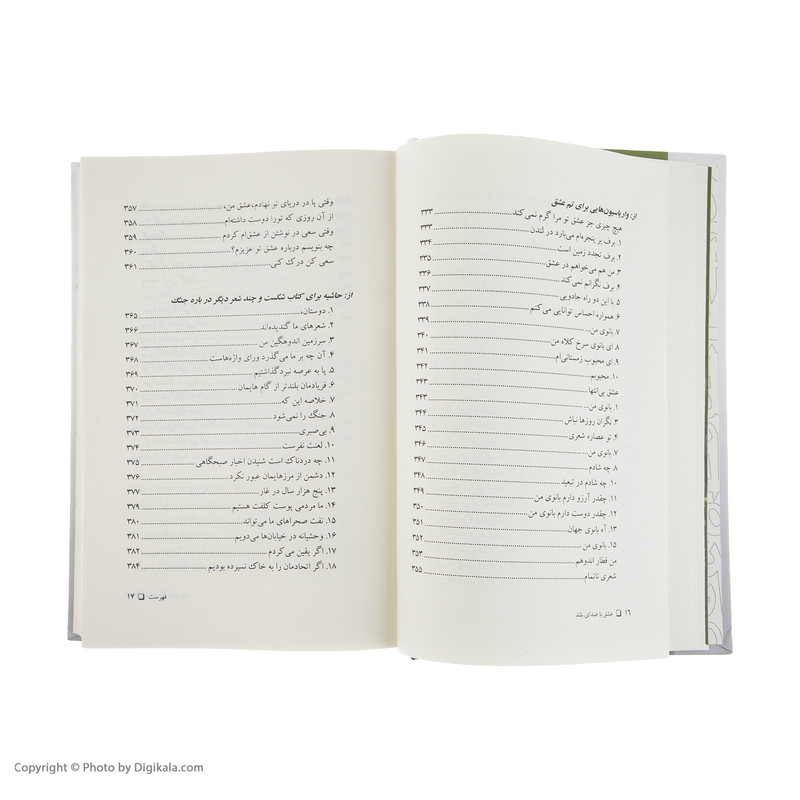 از: واریاسیون‌هایی برای تم عشق
هیچ چیزی جز عشق تو مرا گرم نمی‌کند ۳۳۳
۱. برف بر پنجره‌ام می‌بارد در لندن ۳۳۳
۲. برف تجدد زمین است ۳۳۴
۳. من هم می‌خواهم در عشق ۳۳۵
۴. برف نگرانم نمی‌کند ۳۳۶
۵. با این دو راه جادویی ۳۳۷
۶. همواره احساس توانایی می‌کنم ۳۳۸
۷. بانوی من ۳۳۹
۸. ای بانوی سرخ کلاه من ۳۴۰
۹. ای محبوب زمستانی‌ام ۳۴۱
۱۰. محبوبم ۳۴۲
عشق بی‌انتها ۳۴۳
۱. بانوی من ۳۴۳
۳. نگران روزها نباش ۳۴۴
۴. تو عصاره شعری ۳۴۵
۷. بانوی من ۳۴۶
۸. چه شادم ۳۴۷
۱۰. چه شادم در تبعید ۳۴۸
۱۱. چقدر آرزو دارم بانوی من ۳۴۹
۱۲. چقدر دوست دارم بانوی من ۳۵۰
۱۳. آه بانوی جهان ۳۵۱
۱۵. بانوی من ۳۵۲
من قطار اندوهم ۳۵۳
شعری ناتمام ۳۵۵
۱۶ ❑ عشق با صدای بلند
وقتی پا در دریای تو نهادم،عشق من، ۳۵۷
از آن روزی که تورا دوست داشته‌ام ۳۵۸
وقتی سعی در نوشتن از عشق‌ام کردم ۳۵۹
چه بنویسم درباره عشق تو عزیزم؟ ۳۶۰
سعی کن درک کنی ۳۶۱
از: حاشیه برای کتاب شکست و چند شعر دیگر در باره جنگ
۱. دوستان، ۳۶۵
۲. شعرهای ما گندیده‌اند ۳۶۶
۳. سرزمین اندوهگین من ۳۶۷
۴. آن چه بر ما می‌گذرد ورای واژه‌هاست ۳۶۸
۵. پا به عرصه نبرد گذاشتیم ۳۶۹
۶. فریادمان بلندتر از گام هایمان ۳۷۰
۷. خلاصه این که ۳۷۱
۸. جنگ را نمی‌شود ۳۷۲
۹. بی‌صبری ۳۷۳
۱۰. لعنت نفرست ۳۷۴
۱۱. چه دردناک است شنیدن اخبار صبحگاهی ۳۷۵
۱۲. دشمن از مرزهایمان عبور نکرد ۳۷۶
۱۳. پنج هزار سال در غار ۳۷۷
۱۴. ما مردمی پوست کلفت هستیم ۳۷۹
۱۵. نفت صحراهای ما می‌تواند ۳۸۰
۱۶. وحشیانه در خیابان‌ها می‌دویم ۳۸۱
۱۷. اگر یقین می‌کردم ۳۸۲
۱۸. اگر اتحادمان را به خاک نسپرده بودیم ۳۸۴
فهرست ❑ ۱۷
Copyright © Photo by Digikala.com